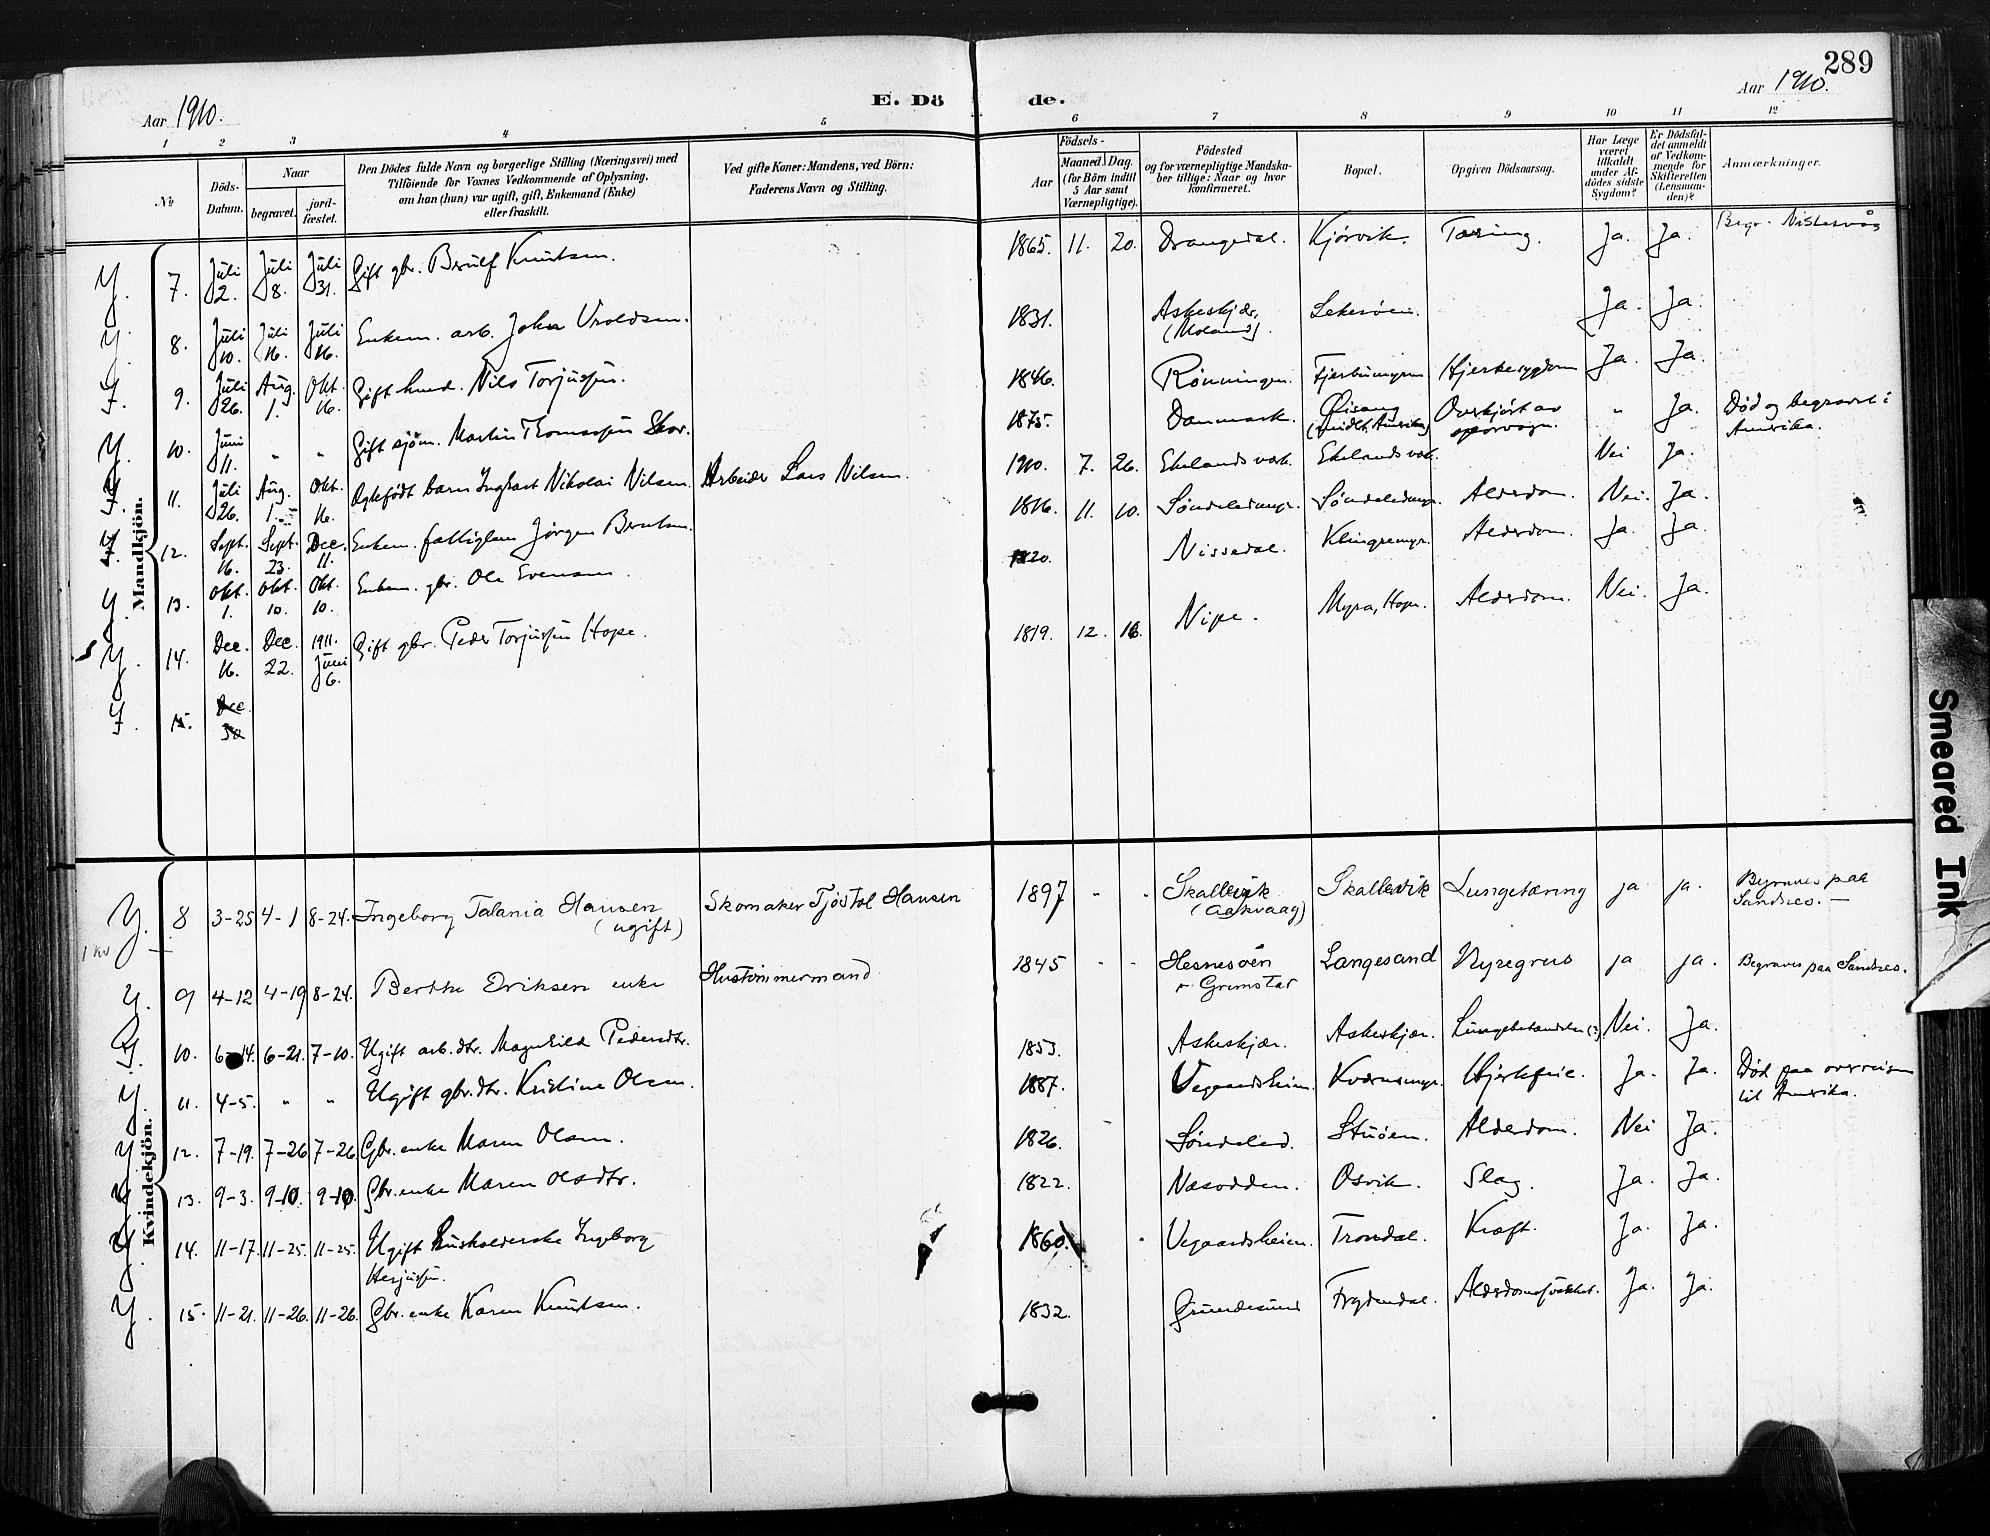 289
Aar 1910.
E. Dö
de.
Aar 1910.
1 2 3 4 5 6 7 8 9 10 11 12
№
Döds-
Datum.
Naar
begravet.
jord-
fæstet.
Den Dödes fulde Navn og borgerlige Stilling (Næringsvei) med
Tilföiende for Voxnes Vedkommende af Oplysning,
om han (hun) var ugift, gift, Enkemand (Enke)
eller fraskilt.
Ved gifte Koner: Mandens, ved Börn:
Faderens Navn og Stilling.
Födsels-
Aar
Maaned.
Dag.
(for Börn indtil
5 Aar samt
Værnepligtige).
Födested
og for værnepligtige Mandska-
ber tillige: Naar og hvor
konfirmeret.
Bopæl.
Opgiven Dödsaarsag.
Har Læge
været
tilkaldt
under Af-
dödes sidste
Sygdom?
Er Dödsfal-
det anmeldt
af Vedkom-
mende for
Skifteretten
(Lensman-
den)?
Anmærkninger.
Mandkjön.
7. Juli 2. Juli 8. Juli 31. Gift gbr. Berulf Knutsen. 1865 11. 20. Drangedal. Kjørvik. Tæring. Ja. Ja.
8. Juli 10. Juli 16. Juli 16. Enkem. arb. Johan Uvoldsen. 1831. Askeskjær, (Moland). Ja. Ja.
9. Juli 26. Aug. 1. Okt. 16. Gift husd. Nils Torjussen. 1846. Rønningen. Hjertesygdom Ja. Ja.
10. Juni 11. " " Gift sjøm. Martin Thomassen 1875. Danmark. Overkjørt av sporvogn. " Ja. Død og begravet i Amerika.
11. Juli 26. Aug. 1. Okt. 16. barn Nikolai Nilsen. Arbeider Lars Nilsen. 1910. 7. 26. Ekelandsverk. Ekelandsverk. Nei Ja.
12. Sept. 16. Sept. 23. Dec. 11. Enkem. fattiglem Jørgen Berntsen. 1816. 11. 10. Søndeledmyr. Søndeledmyr. Alderdom. Nei. Ja.
13. Okt. 1. Okt. 10. Okt. 10. Enkem. gbr. Ole Evensen. 1820. Nissedal. Klingremyr. Alderdom. Ja. Ja.
14. Dec. 16. Dec. 22. 1911. Juni 6. Gift gbr. Peder Torjussen Hope. 1819. 12. 16. Nipe. Myra, Hope. Alderdom. Nei. Ja.
15. Dec. 30
Smeared Ink
Kvindekjön.
8 3-25 4-1 8-24. Ingeborg Talania Hansen (ugift) Skomaker Tjøstol Hansen 1897 - - Skallevik (Aakvaag) Skallevik Lungetæring ja ja. Begraves paa Sandnes. —
9 4-12 4-19 8-24. Berthe Eriksen enke Hustømmermand 1845 - - Hesnesøen v. Grimstad Langesand Nyregrus ja ja. Begraves paa Sandnes.
10. 6-14. 6-21. 7-10. Ugift arb.dtr. Magnhild Pedersdtr. 1853. Askeskjær. Askeskjær. Lungebetændelse (?) Nei. Ja.
11. 4-5. " " Ugift gbr.dtr. Kristine Olsen. 1887. Vegaardsheien. Kværnemyr. Hjertefeil. Ja. Ja. Død paa overreisen til Amerika.
12. 7-19. 7-26 7-26 Gbr. enke Maren Olsen. 1826. Søndeled. Stuøen. Alderdom. Nei Ja.
13. 9-3. 9-10. 9-10. Gbr. enke Maren Olsdtr. 1822. Næsodden. Osvik. Slag. Ja. Ja.
14. 11-17. 11-25. 11-25. Ugift husholderske Ingeborg Herjussen. 1860. Vegaardsheien. Trondal. Kræft. Ja. Ja.
15. 11-21. 11-26. 11-26. Gbr. enke Karen Knutsen. 1832. Grundesund Frydendal. Alderdomssvækket. Ja. Ja.